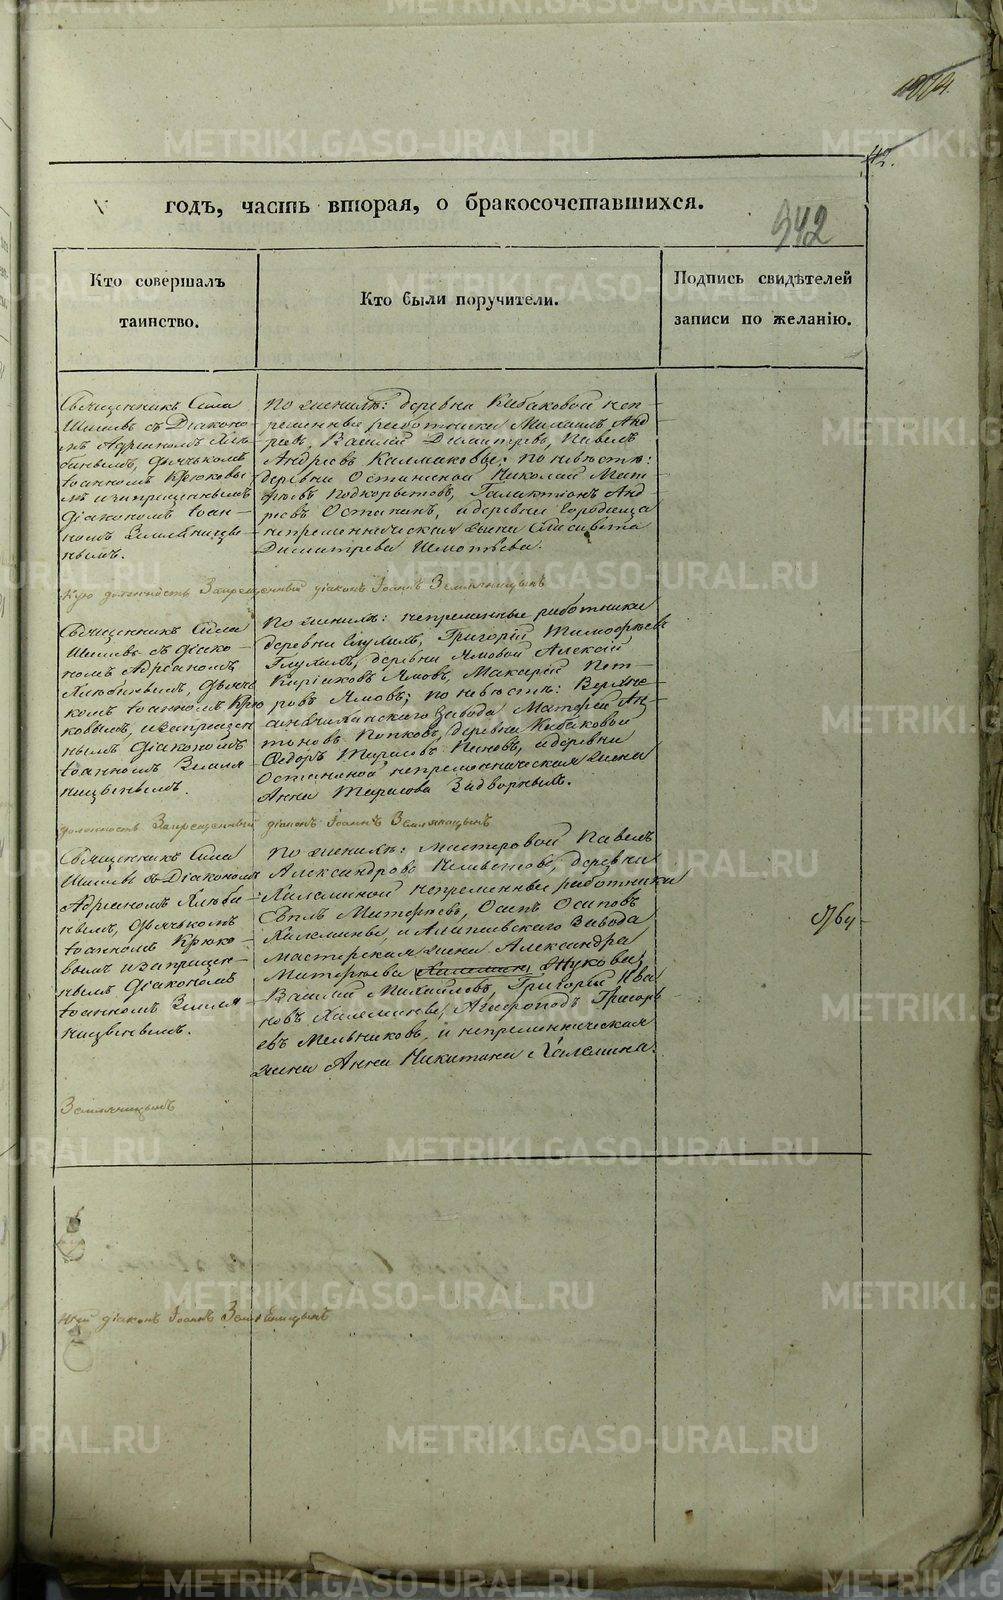 42.
годъ, часть вторая, о бракосочетавшихся.
342
Кто совершалъ
таинство.
Кто были поручители.
Подпись свидѣтелей
записи по желанію.
Священникъ Сила
Шишевъ съ Діаконо-
мъ Адріаномъ Люби-
Іоанномъ Крюковы-
мъ и запрещеннымъ
діакономъ Іоан-
номъ Земляницы-
нымъ.
По женихѣ: деревни Кабаковой неп-
ременные работники Михаилъ Анд-
реевъ, Василій Димитріевъ, Павелъ
Андреевъ Калмаковы; по невѣстѣ:
деревни Останиной Николай Мат-
фѣевъ Подкорытовъ, Галактіонъ Анд-
реевъ Останинъ, и деревни Городища
непремѣнническая жена Елисавета
Димитріева
кую должность Запрещенный діаконъ Іоаннъ Земляницынъ
Священникъ Сила
Шишевъ съ діако-
номъ Адріаномъ
Любинымъ, дьяч-
комъ Іоанномъ Крю-
ковымъ, и запрещен-
нымъ діакономъ
Іоанномъ Земля-
ницынымъ.
По женихѣ: непременные работники
деревни Глухихъ, Григорій Тимофѣевъ
Глухихъ, деревни Ямовой Алексій
Киріаковъ Ямовъ, Макарій Пет-
ровъ Ямовъ; по невѣстѣ: Верхне-
синячихинскаго Завода Матфей Ан-
тоновъ Попковъ, деревни Кабаковой
Федоръ Тарасовъ Пановъ, и деревни
Останиной непремѣнническая жена
Анна Тарасова Задворныхъ.
должность Запрещенный діаконъ Іоаннъ Земляницынъ
Священникъ Сила
Шишевъ съ Діакономъ
Адріаномъ Люби-
нымъ, дьячкомъ
Іоанномъ Крюко-
вымъ и запрещен-
нымъ діакономъ
Іоанномъ Земля-
ницынымъ.
По женихѣ: мастеровой Павелъ
Александровъ деревни
Халеминой непременные работники
Матфѣевъ, Осипъ Осиповъ
Халемины, и Алапаевскаго Завода
мастерская жена Александра
Матфѣева Жукова;
Василій Михайловъ, Григорій Ива-
новъ Халемины, Агафоподъ Григорь-
евъ Мельниковъ, и непремѣнническая
жена Анна Никитина Халемина.
Земляницынъ
ный діаконъ Іоаннъ Земляницынъ
METRIKI.GASO-URAL.RU